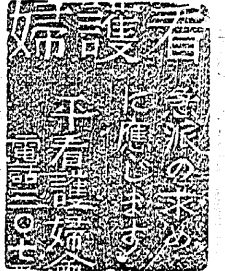 看護婦
急派の求め
に應じます
平看護婦會
電話三〇七